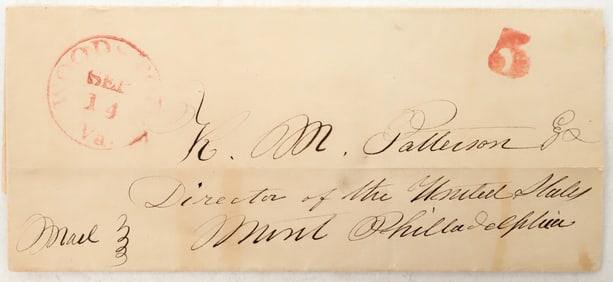 5
SEP
14
Va.
K. M. Patterson Esq
Director of the United States
Mint Philladelphia
Mail